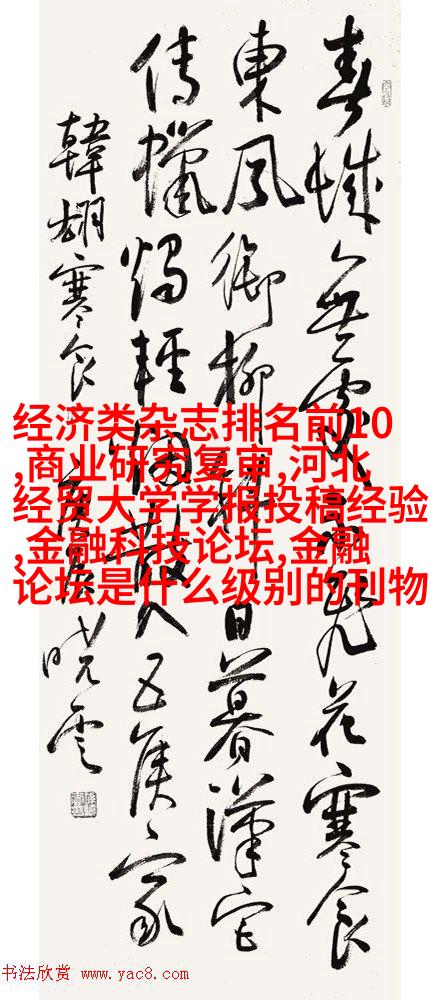 春城無處不飛花寒食
東風御柳斜日暮漢宮
傳蠟燭輕煙散入五侯家
韓翃寒食 曉雲
经济类杂志排名前10
,商业研究复审,河北
经贸大学学报投稿经验
,金融科技论坛,金融
论坛是什么级别的刊物
书法欣赏 www.yac8.com